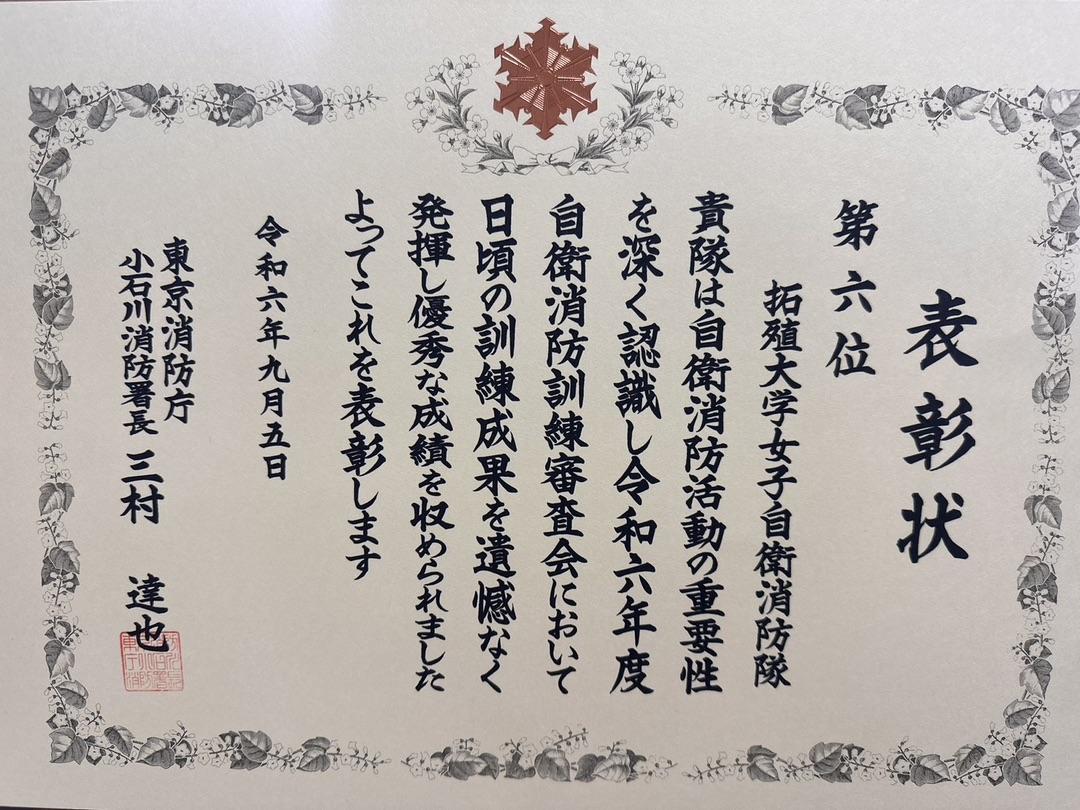 表彰状
第六位
拓殖大学女子自衛消防隊
貴隊は自衛消防活動の重要性
を深く認識し令和六年度
自衛消防訓練審査会において
日頃の訓練成果を遺憾なく
発揮し優秀な成績を収められました
よってこれを表彰します
令和六年九月五日
東京消防庁
小石川消防署長 三村 達也